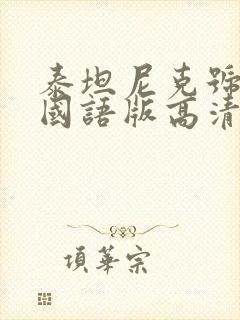 泰坦尼克號
國語版高清
項華宗